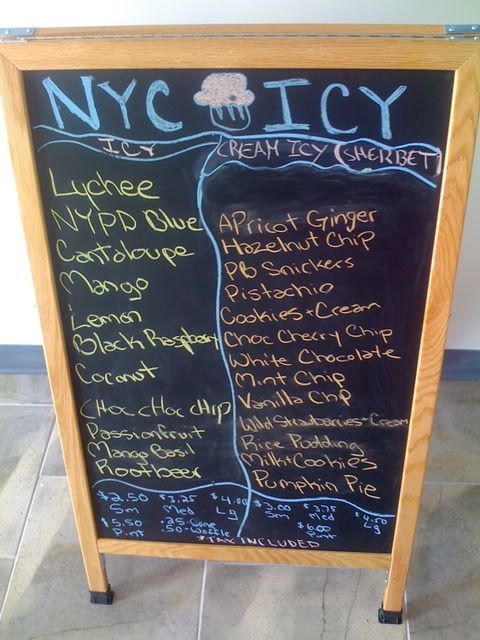 NYC ICY
ICY
Lychee
NYPD Blue
Cantaloupe
Mango
Lemon
Black Raspberry
Coconut
CHOC CHOC CHIP
Passionfruit
Mango Basil
Rootbeer
$2.50 $3.25 $4.00
Sm Med Lg
$5.50 .25-Cone
Pint 50-Waffle
CREAM ICY (SHERBET)
APricot Ginger
Hazelnut Chip
PB Snickers
Pistachio
Cookies + Cream
Choc Cherry Chip
White Chocolate
Mint Chip
Vanilla Chip
Wild Strawberries + Cream
Rice Pudding
Milk + Cookies
Pumpkin Pie
$3.00 $3.75 $4.50
Sm Med Lg
$6.00
Pint
*TAX INCLUDED